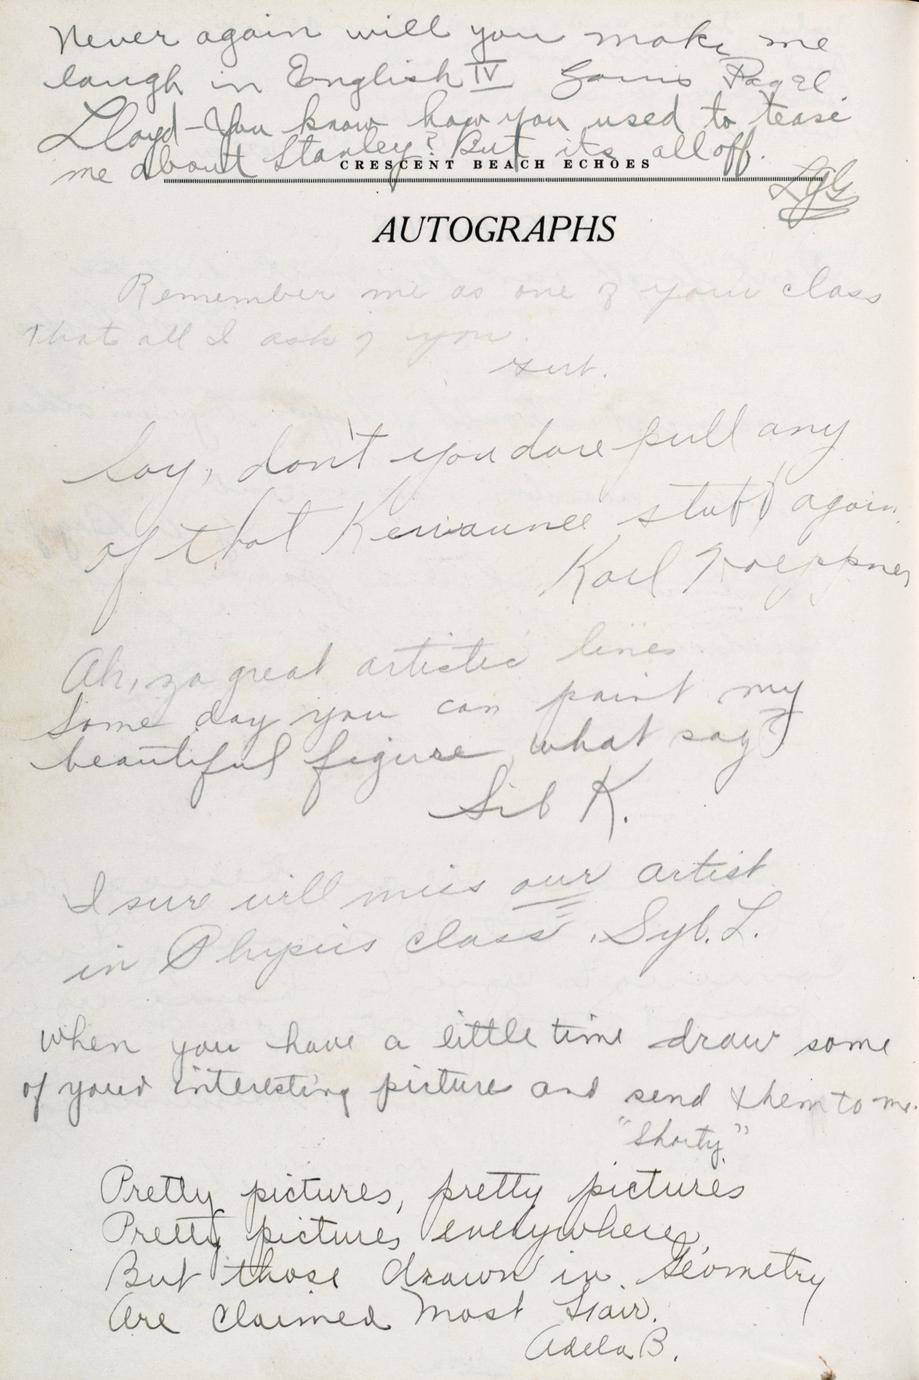 Never again will you make me
laugh in English IV Pagel
Lloyd - You know how you used to tease
me about Stanley? But its all off.
CRESCENT BEACH ECHOES
LGG
AUTOGRAPHS
Remember me as one of your class
That all I ask of you.
Say, don't you dare pull any
of that Kewaunee stuff again.
Karl
Ah, za great artistic lines
Some day you can paint my
beautiful figure, what say?
Sib K.
I sure will miss our artist
in Physics class. Syb. L.
When you have a little time draw some
of your interesting picture and send them to me.
"Shorty"
Pretty pictures, pretty pictures
Pretty pictures everywhere,
But those drawn in Geometry
Are claimed most fair.
Adela B.